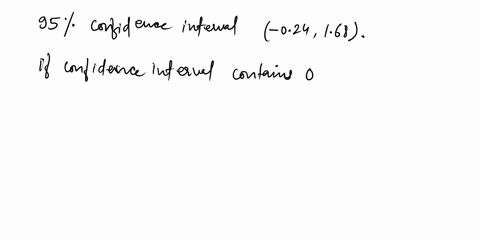 95% confidence interval (-0.24, 1.68).
If confidence interval contains 0